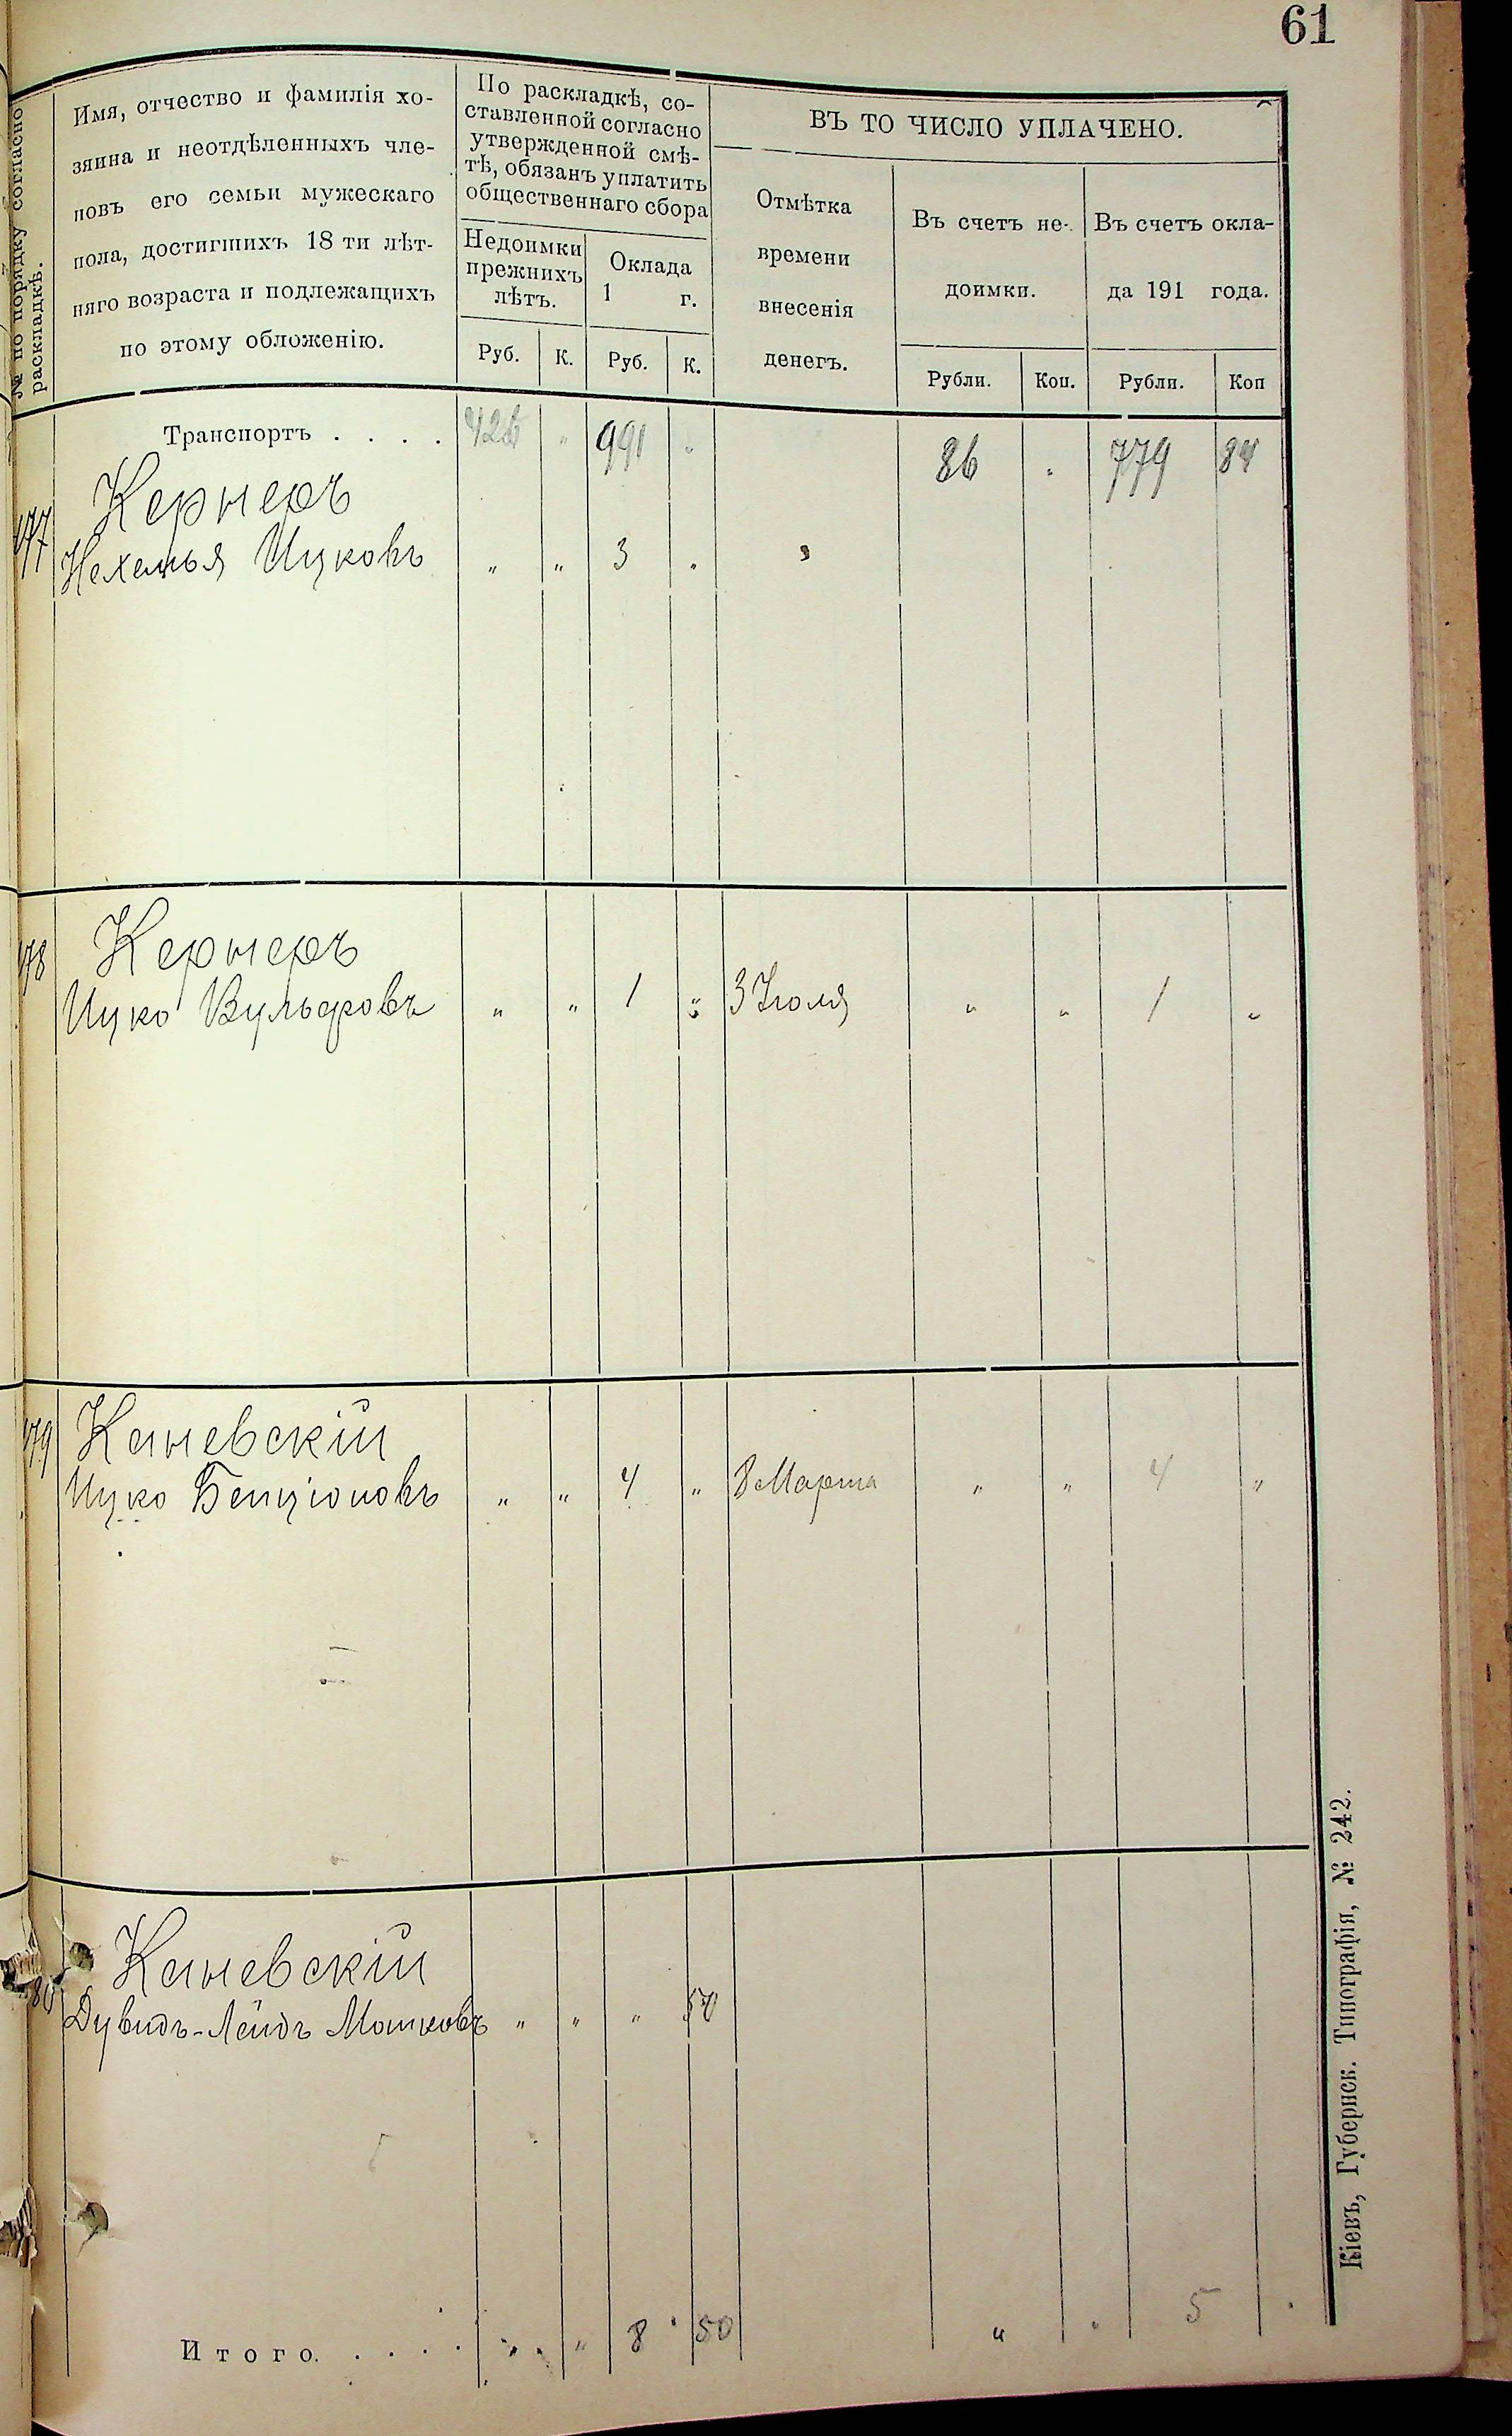 61
№ по порядку согласно
раскладкѣ.
Имя, отчество и фамилія хо-
зяина и неотдѣленныхъ чле-
новъ его семьи мужескаго
пола, достигшихъ 18 ти лѣт-
няго возраста и подлежащихъ
по этому обложенію.
По раскладкѣ, со-
ставленной согласно
утвержденной смѣ-
тѣ, обязанъ уплатить
общественнаго сбора
Недоимки
прежнихъ
лѣтъ.
Оклада
1 г.
Руб. К. Руб. К.
ВЪ ТО ЧИСЛО УПЛАЧЕНО.
Отмѣтка
времени
внесенія
денегъ.
Въ счетъ не-
доимки.
Въ счетъ окла-
да 191 года.
Рубли. Коп. Рубли. Коп
Транспортъ . . . . " 991 " 86 " 779 84
177 Кернеръ
Нехемья Ицковъ " " 3 "
178 Кернеръ
Ицко Вульфовъ " " 1 " 3 Іюля " " 1 "
179 Каневскій
Ицко Бенціоновъ " " 4 " 8 Марта " " 4 "
180 Каневскій
Дувидъ-Лейдъ Мошковъ " " " 50
Итого. . . . . " " 8 50 " " 5
Кіевъ, Губернск. Типографія, № 242.